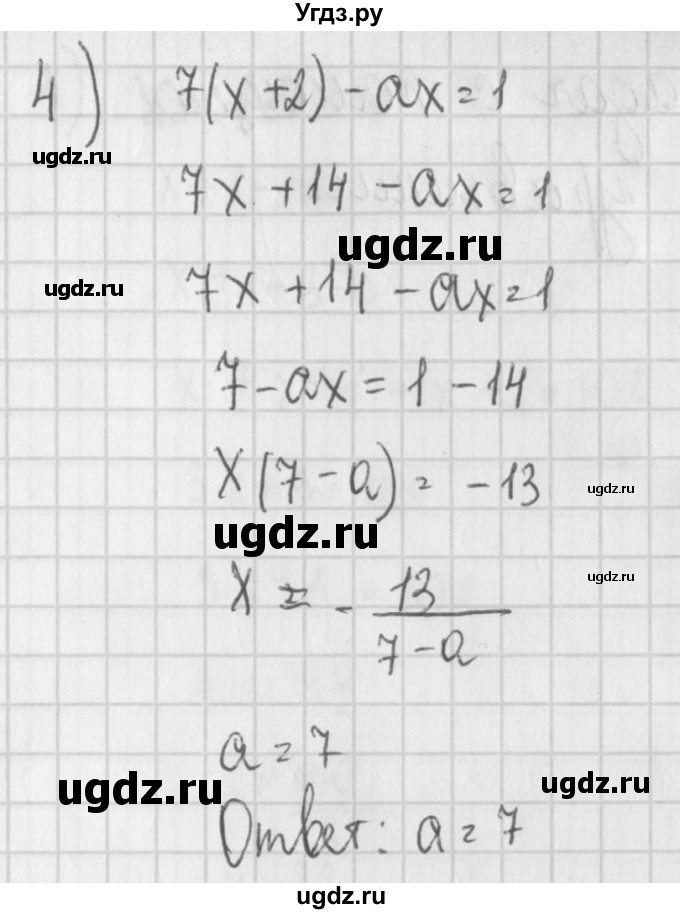 Угдз.ру
4) 7(x+2)-ax=1
ugdz.ru
7x+14-ax=1
ugdz.ru
ugdz.ru
7x+14-ax=1
7-ax=1-14
x(7-a)=-13
ugdz.ru
ugdz.ru
ugdz.ru
x=-13/7-a
a=7
ugdz.ru
ugdz.ru
Ответ: a=7
ugdz.ru